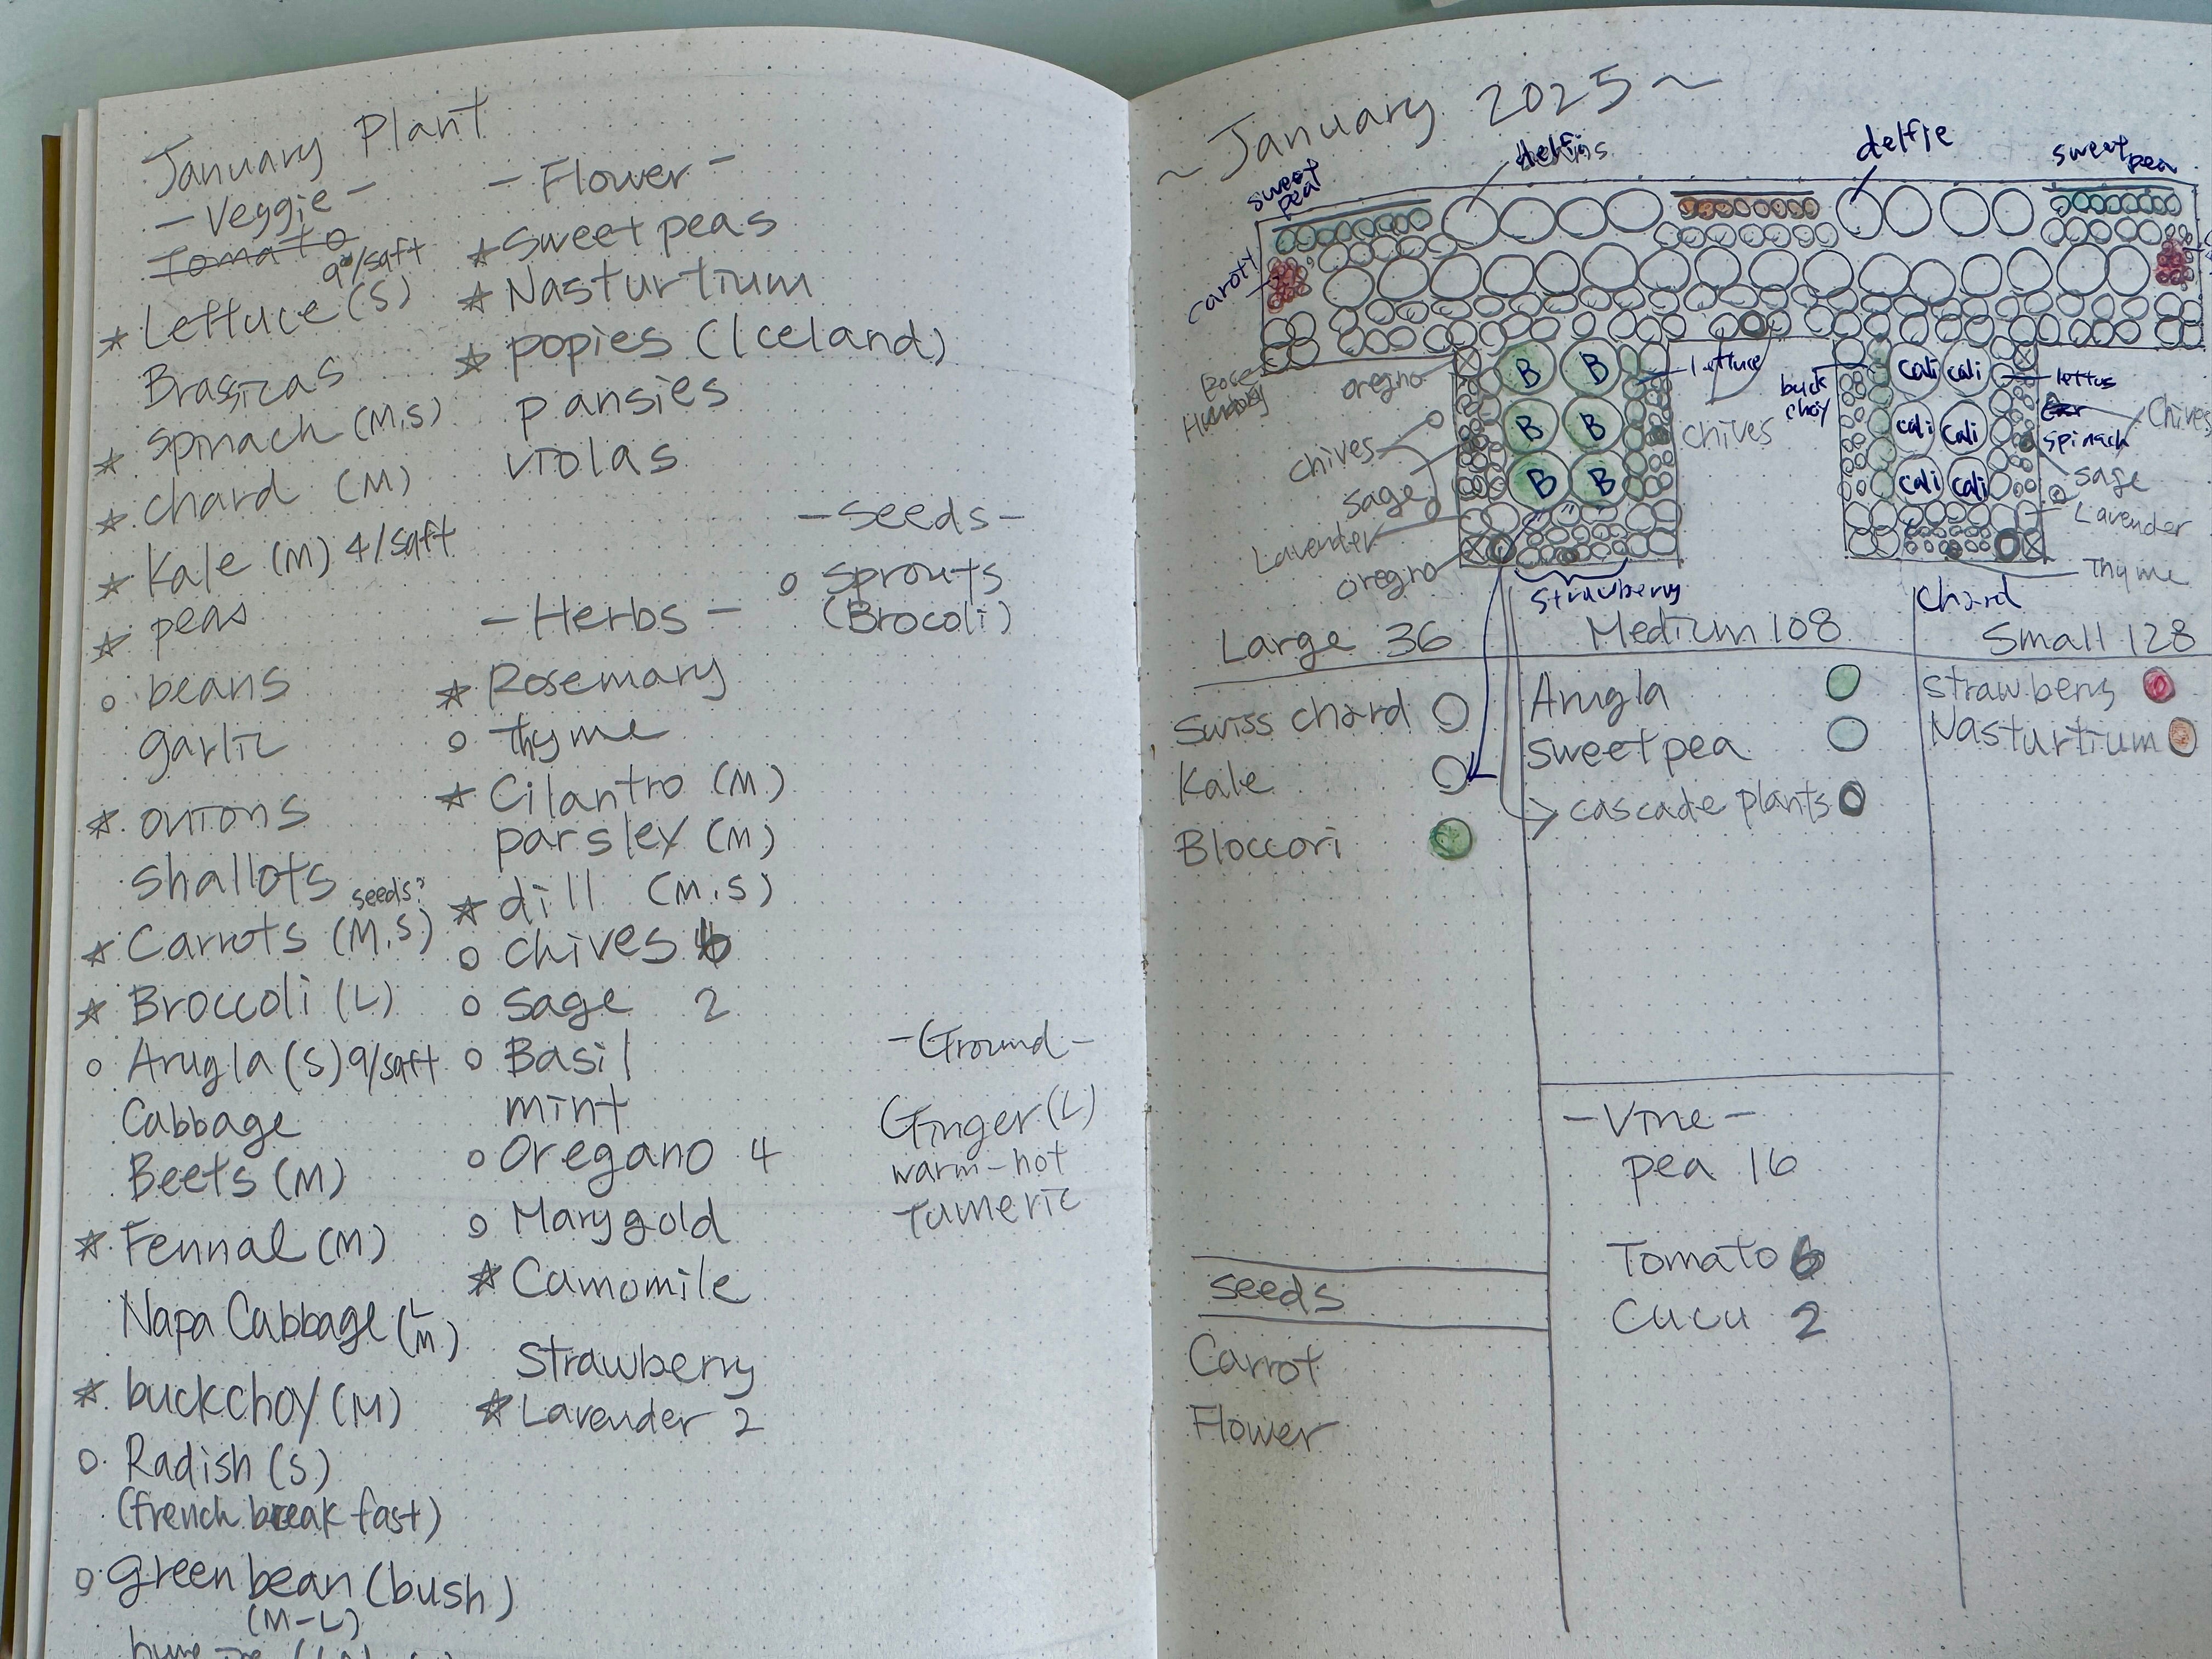 January Plant
- Veggie -
Tomato
9/sqft
* Lettuce (S)
Brassicas
* Spinach (M,S)
* chard (M)
* Kale (M) 4/sqft
* peas
o beans
garlic
* onions
shallots
seeds?
* Carrots (M,S)
* Broccoli (L)
o Arugla (S) 9/sqft
Cabbage
Beets (M)
* Fennal (M)
Napa Cabbage (L M)
* buckchoy (M)
o Radish (S)
(french break fast)
o green bean (bush)
(M-L)
- Flower -
* Sweet peas
* Nasturtium
* popies (Iceland)
pansies
violas
- Herbs -
* Rosemary
o Thyme
* Cilantro (M)
parsley (M)
* dill (M,S)
o chives 6
o Sage 2
o Basil
mint
o Oregano 4
o Marygold
* Camomile
Strawberry
* Lavender 2
- Seeds -
o sprouts
(Brocoli)
- Ground -
Ginger (L)
warm-hot
Tumeric
~ January 2025 ~
sweet
peat
delfins
delfie
sweet
pea
carott
oregno
chives
sage
Lavender
oregno
B B
B B
B B
lettuce
chives
strawberry
buck
choy
cali cali
cali cali
cali cali
lettus
spinach
chives
sage
Lavender
Thyme
chard
Large 36
Swiss chard
Kale
Bloccori
Medium 108
Arugla
sweet pea
→ cascade plants
Small 128
strawbery
Nasturtium
- Vine -
pea 16
Tomato 6
Cucu 2
seeds
Carrot
Flower